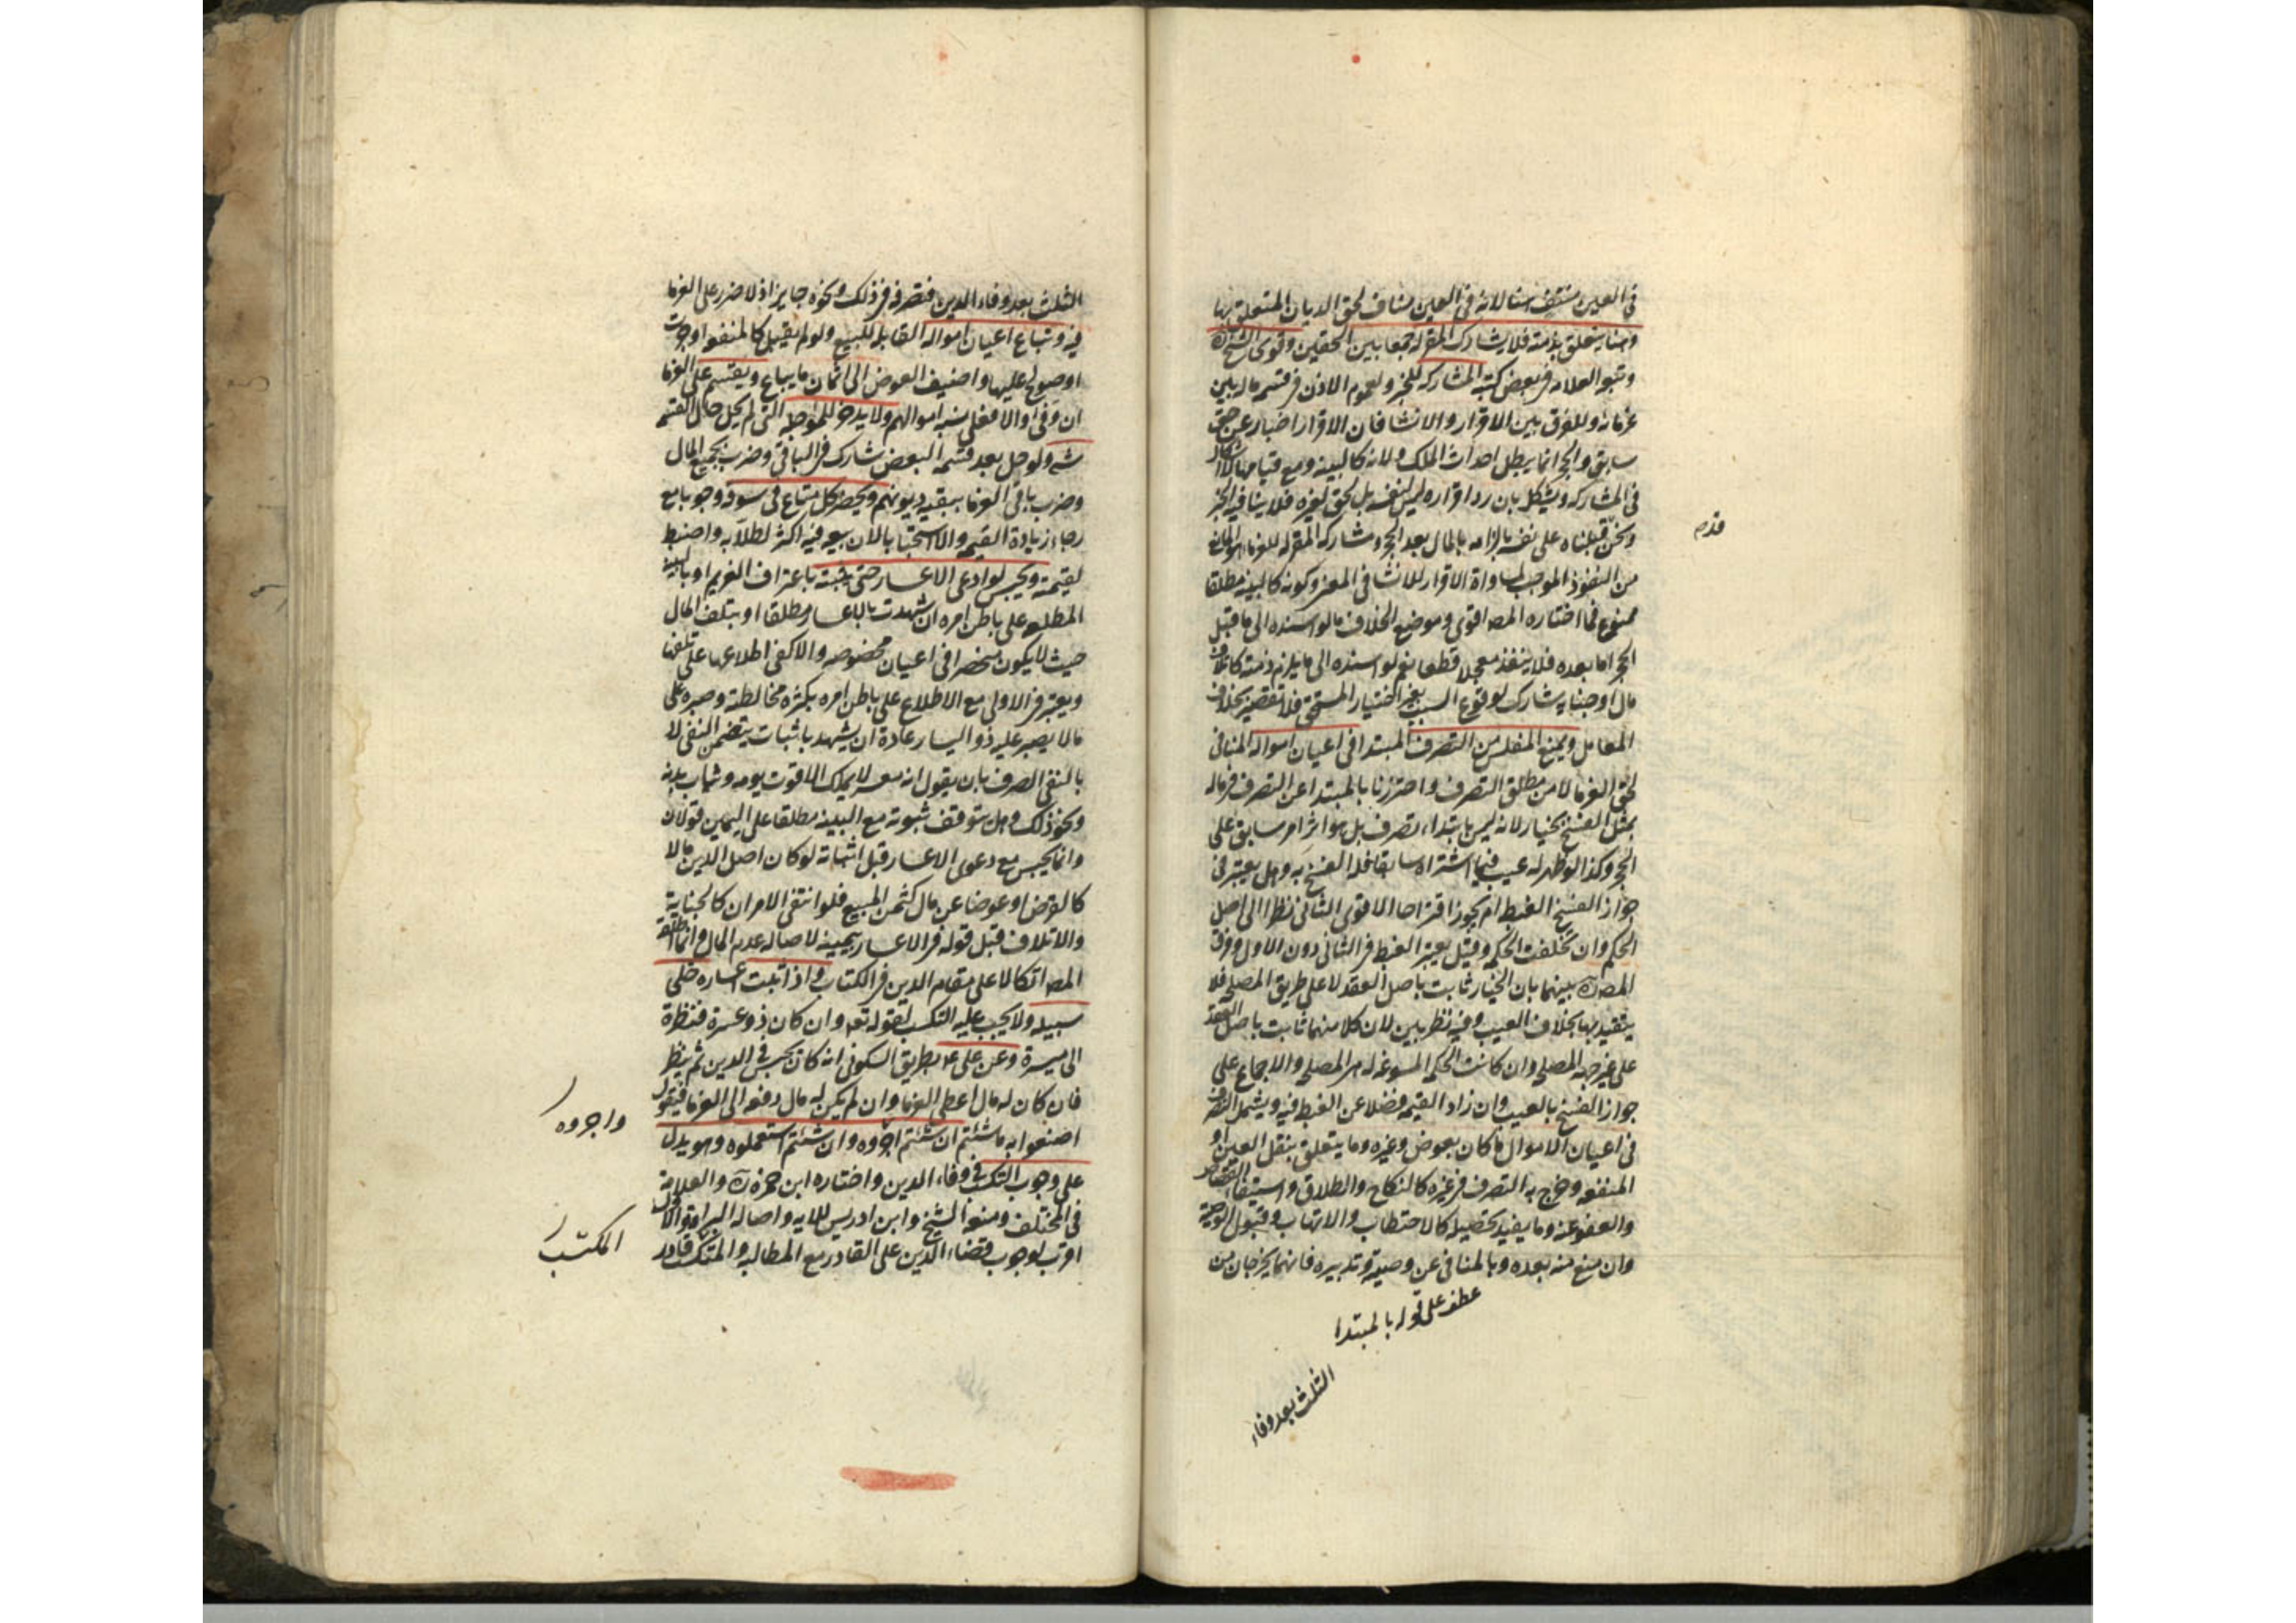 في العين منتف هنا لانه في العين مناف لحق الديان المتعلق بها
وهنا يتعلق بذمته فلا يشارك المقر له جمعا بين الحقين وقوى الشيخ ره
وتبعه العلامه في بعض كتبه المشاركه للخبر ولعموم الاذن في قسمه ماله بين
غرمائه وللفرق بين الاقرار والانشا فان الاقرار اخبار عن حق
سابق والحجر انما يبطل احداث الملك ولانه كالبينه ومع قيامها لا اشكال
في المشاركه ويشكل بان رد اقراره ليس لنفسه بل لحق غيره فلا ينافيه الخبر
ونحن قبلناه على نفسه بالزامه بالمال بعد الحجر ومشاركه المقر له للغرماء هو المانع
من النفوذ الموجب لمساواة الاقرار للانشا في المعنى وكونه كالبينه مطلقا
ممنوع فما اختاره المصه اقوى وموضع الخلاف ما لو اسنده الى ما قبل
الحجر اما بعده فلا ينفذ معجلا قطعا نعم لو اسنده الى ما يلزم ذمته كاتلاف
مال او جنايه شارك لوقوع السبب بغير اختيار المستحق فلا تقصير بخلاف
المعامل ويمنع المفلس من التصرف المبتدا في اعيان امواله المنافى
لحق الغرما لا من مطلق التصرف واحترزنا بالمبتدا عن التصرف في ماله
بمثل الفسخ بخيار لانه ليس بابتداء تصرف بل هو اثر امر سابق على
الحجر وكذا لو ظهر له عيب فيما اشتراه سابقا فله الفسخ به وهل يعتبر في
جواز الفسخ الغبطه ام يجوز اقتراحا الاقوى الثانى نظرا الى اصل
الحكم وان تخلفت الحكمه وقيل يعتبر الغبطه في الثانى دون الاول وفرق
المصه ره بينهما بان الخيار ثابت باصل العقد لا على طريق المصلحه فلا
يتقيد بها بخلاف العيب وفيه نظر بين لان كلا منهما ثابت باصل العقد
على غير جهه المصلحه وان كانت الحكمه المسوغه له هي المصلحه والاجماع على
جواز الفسخ بالعيب وان زاد القيمه فضلا عن الغبطه فيه ويشمل التصرف
في اعيان الاموال ما كان بعوض وغيره وما يتعلق بنقل العين او
المنفعه وخرج به التصرف في غيره كالنكاح والطلاق واستيفاء القصاص
والعفو عنه وما يفيد تحصيله كالاحتطاب والاتهاب وقبول الوصية
وان منع منه بعده وبالمنافى عن وصيته وتدبيره فانهما يخرجان من
عطف على قوله بالمبتدا
الثلث بعد وفاء
الثلث بعد وفاء الدين فتصرفه في ذلك ونحوه جايز اذ لا ضرر على الغرما
فيه وتباع اعيان امواله القابله للبيع ولو لم يقبل كالمنفعه اوجرت
او صولح عليها واضيف العوض الى اثمان ما يباع ويقسم على الغرما
ان وفى والا فعلى نسبه اموالهم ولا يدخر للموجله التى لم يحل حال القسمه
شي ولو حل بعد قسمه البعض شارك في الباقى وضرب بجميع المال
وضرب باقى الغرما ببقيه ديونهم ويحضر كل متاع في سوقه وجوبا مع
رجاء زيادة القيمه والا استحبابا لان بيعه فيه اكثر لطلابه واضبط
لقيمته ويحبس لو ادعى الاعسار حتى يثبته باعتراف الغريم او بالبينه
المطلعه على باطن امره ان شهدت بالاعسار مطلقا او بتلف المال
حيث لا يكون منحصرا في اعيان مخصوصه والا كفى اطلاعها على تلفها
ويعتبر في الاولى مع الاطلاع على باطن امره بكثرة مخالطته وصبره على
ما لا يصبر عليه ذو اليسار عادة ان يشهد باثبات يتضمن النفى لا
بالنفى الصرف بان يقول انه معسر لا يملك الا قوت يومه وثياب بدنه
ونحو ذلك وهل يتوقف ثبوته مع البينه مطلقا على اليمين قولان
وانما يحبس مع دعوى الاعسار قبل اثباته لو كان اصل الدين مالا
كالقرض او عوضا عن مال كثمن المبيع فلو انتفى الامران كالجناية
والاتلاف قبل قوله في الاعسار بيمينه لاصاله عدم المال وانما اطلقه
المصه اتكالا على مقام الدين في الكتاب واذا ثبت اعساره خلى
سبيله ولا يجب عليه التكسب لقوله تعه وان كان ذو عسرة فنظرة
الى ميسرة وعن على ع بطريق السكونى انه كان يحبس في الدين ثم ينظر
فان كان له مال اعطى الغرما وان لم يكن له مال دفعه الى الغرما فيقول
اصنعوا به ما شئتم ان شئتم اجروه وان شئتم استعملوه وهو يدل
على وجوب التكسب في وفاء الدين واختاره ابن حمزه ره والعلامة
في المختلف ومنعه الشيخ وابن ادريس للايه واصاله البراءة والاول
اقرب لوجوب قضاء الدين على القادر مع المطالبه والمتكسب قادر
واجروه
المكتسب